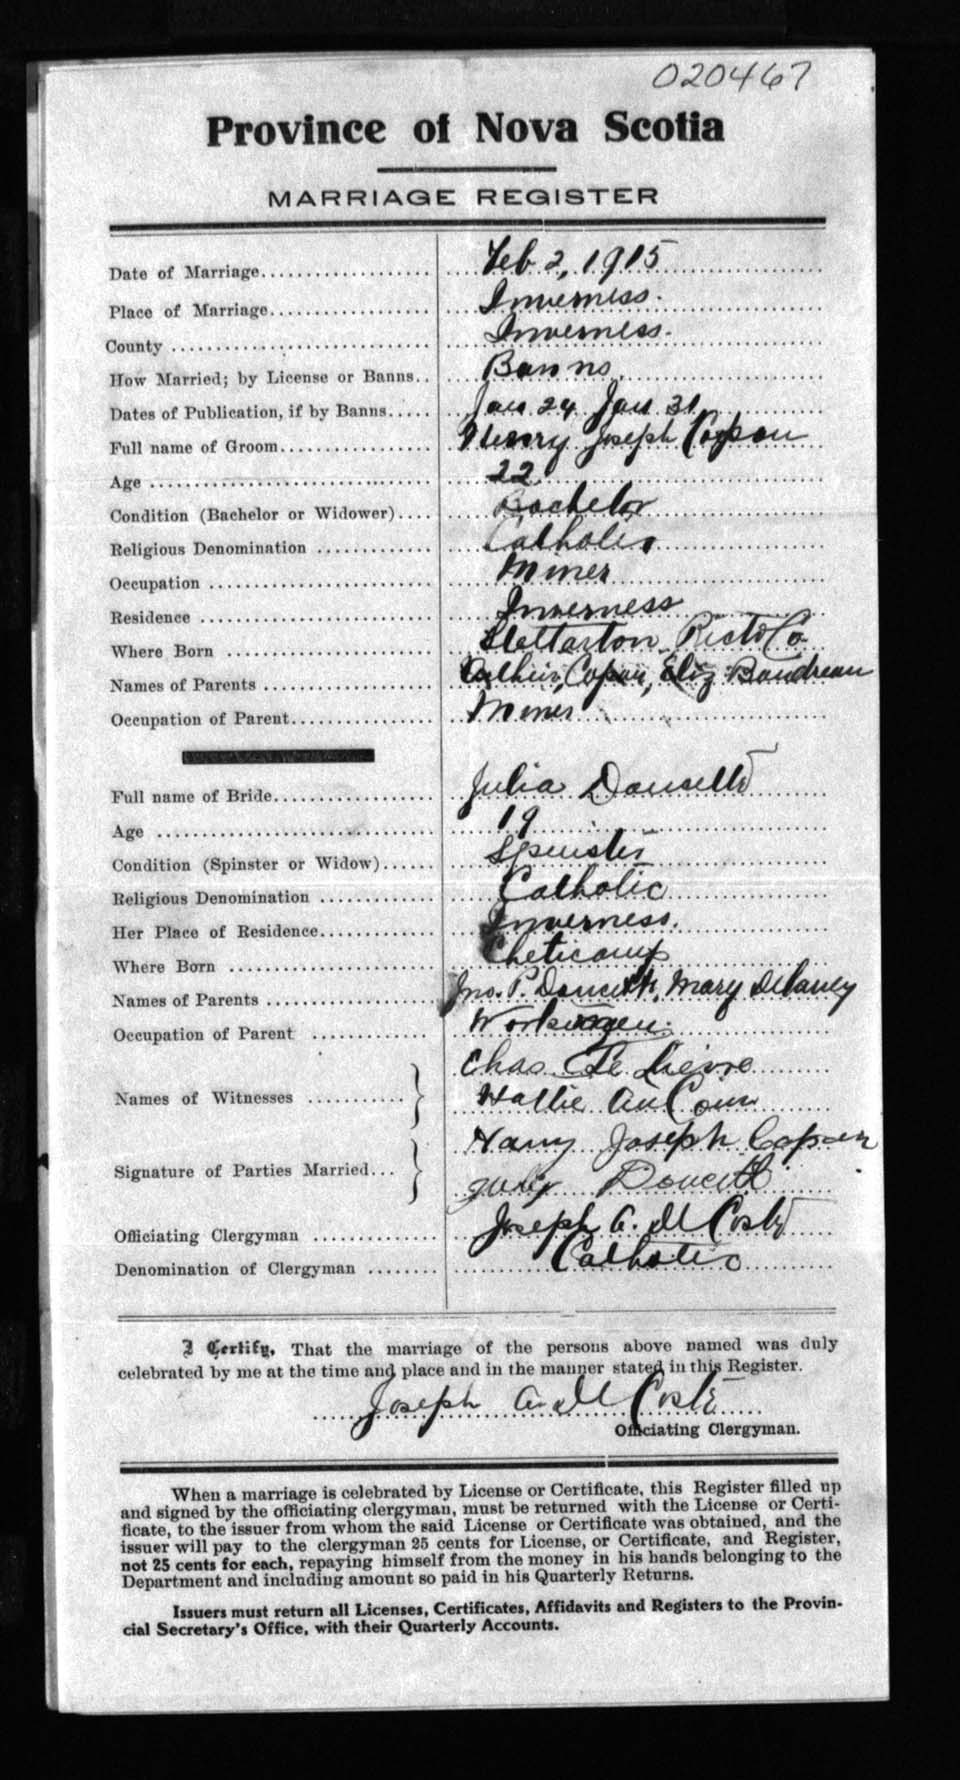 020467
Province of Nova Scotia
MARRIAGE REGISTER
Date of Marriage Feb 2, 1915
Place of Marriage Inverness.
County Inverness.
How Married; by License or Banns Banns
Dates of Publication, if by Banns Jan 24 Jan 31
Full name of Groom Henry Joseph
Age 22
Condition (Bachelor or Widower) Bachelor
Religious Denomination Catholic
Occupation Miner
Residence Inverness
Where Born Stellarton Pictō Co
Names of Parents Eliz Boudreau
Occupation of Parent Miner
Full name of Bride Julia Doucette
Age 19
Condition (Spinster or Widow) Spinster
Religious Denomination Catholic
Her Place of Residence Inverness.
Where Born Cheticamp
Names of Parents Jno. P. Doucette, Mary Delaney
Occupation of Parent
Names of Witnesses Chas Le Lievre
Hattie AuCoin
Signature of Parties Married Harry Joseph
Doucette
Officiating Clergyman Joseph A. DeCoste
Denomination of Clergyman Catholic
I Certify, That the marriage of the persons above named was duly
celebrated by me at the time and place and in the manner stated in this Register.
Joseph A. DeCoste
Officiating Clergyman.
When a marriage is celebrated by License or Certificate, this Register filled up
and signed by the officiating clergyman, must be returned with the License or Certi-
ficate, to the issuer from whom the said License or Certificate was obtained, and the
issuer will pay to the clergyman 25 cents for License, or Certificate, and Register,
not 25 cents for each, repaying himself from the money in his hands belonging to the
Department and including amount so paid in his Quarterly Returns.
Issuers must return all Licenses, Certificates, Affidavits and Registers to the Provin-
cial Secretary's Office, with their Quarterly Accounts.